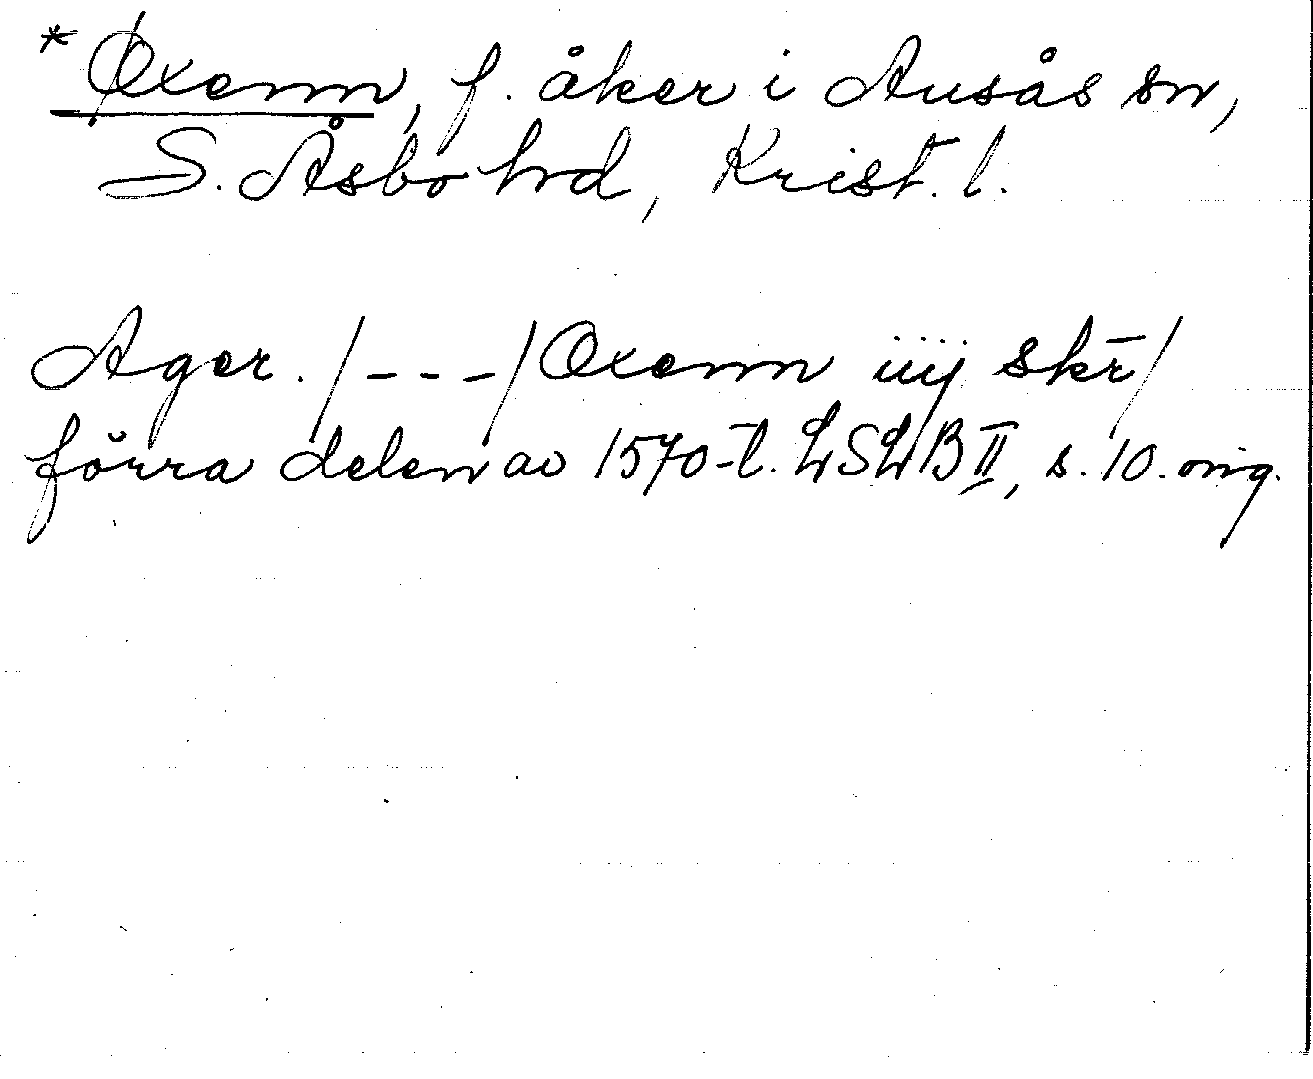 *Øxenn, f. åker i Ausås sn,
S. Åsbo hrd, Krist. l.
Ager. /---/ Øxenn iiij skr̄/
förra delen av 1570-t. LSLB II, s. 10. orig.